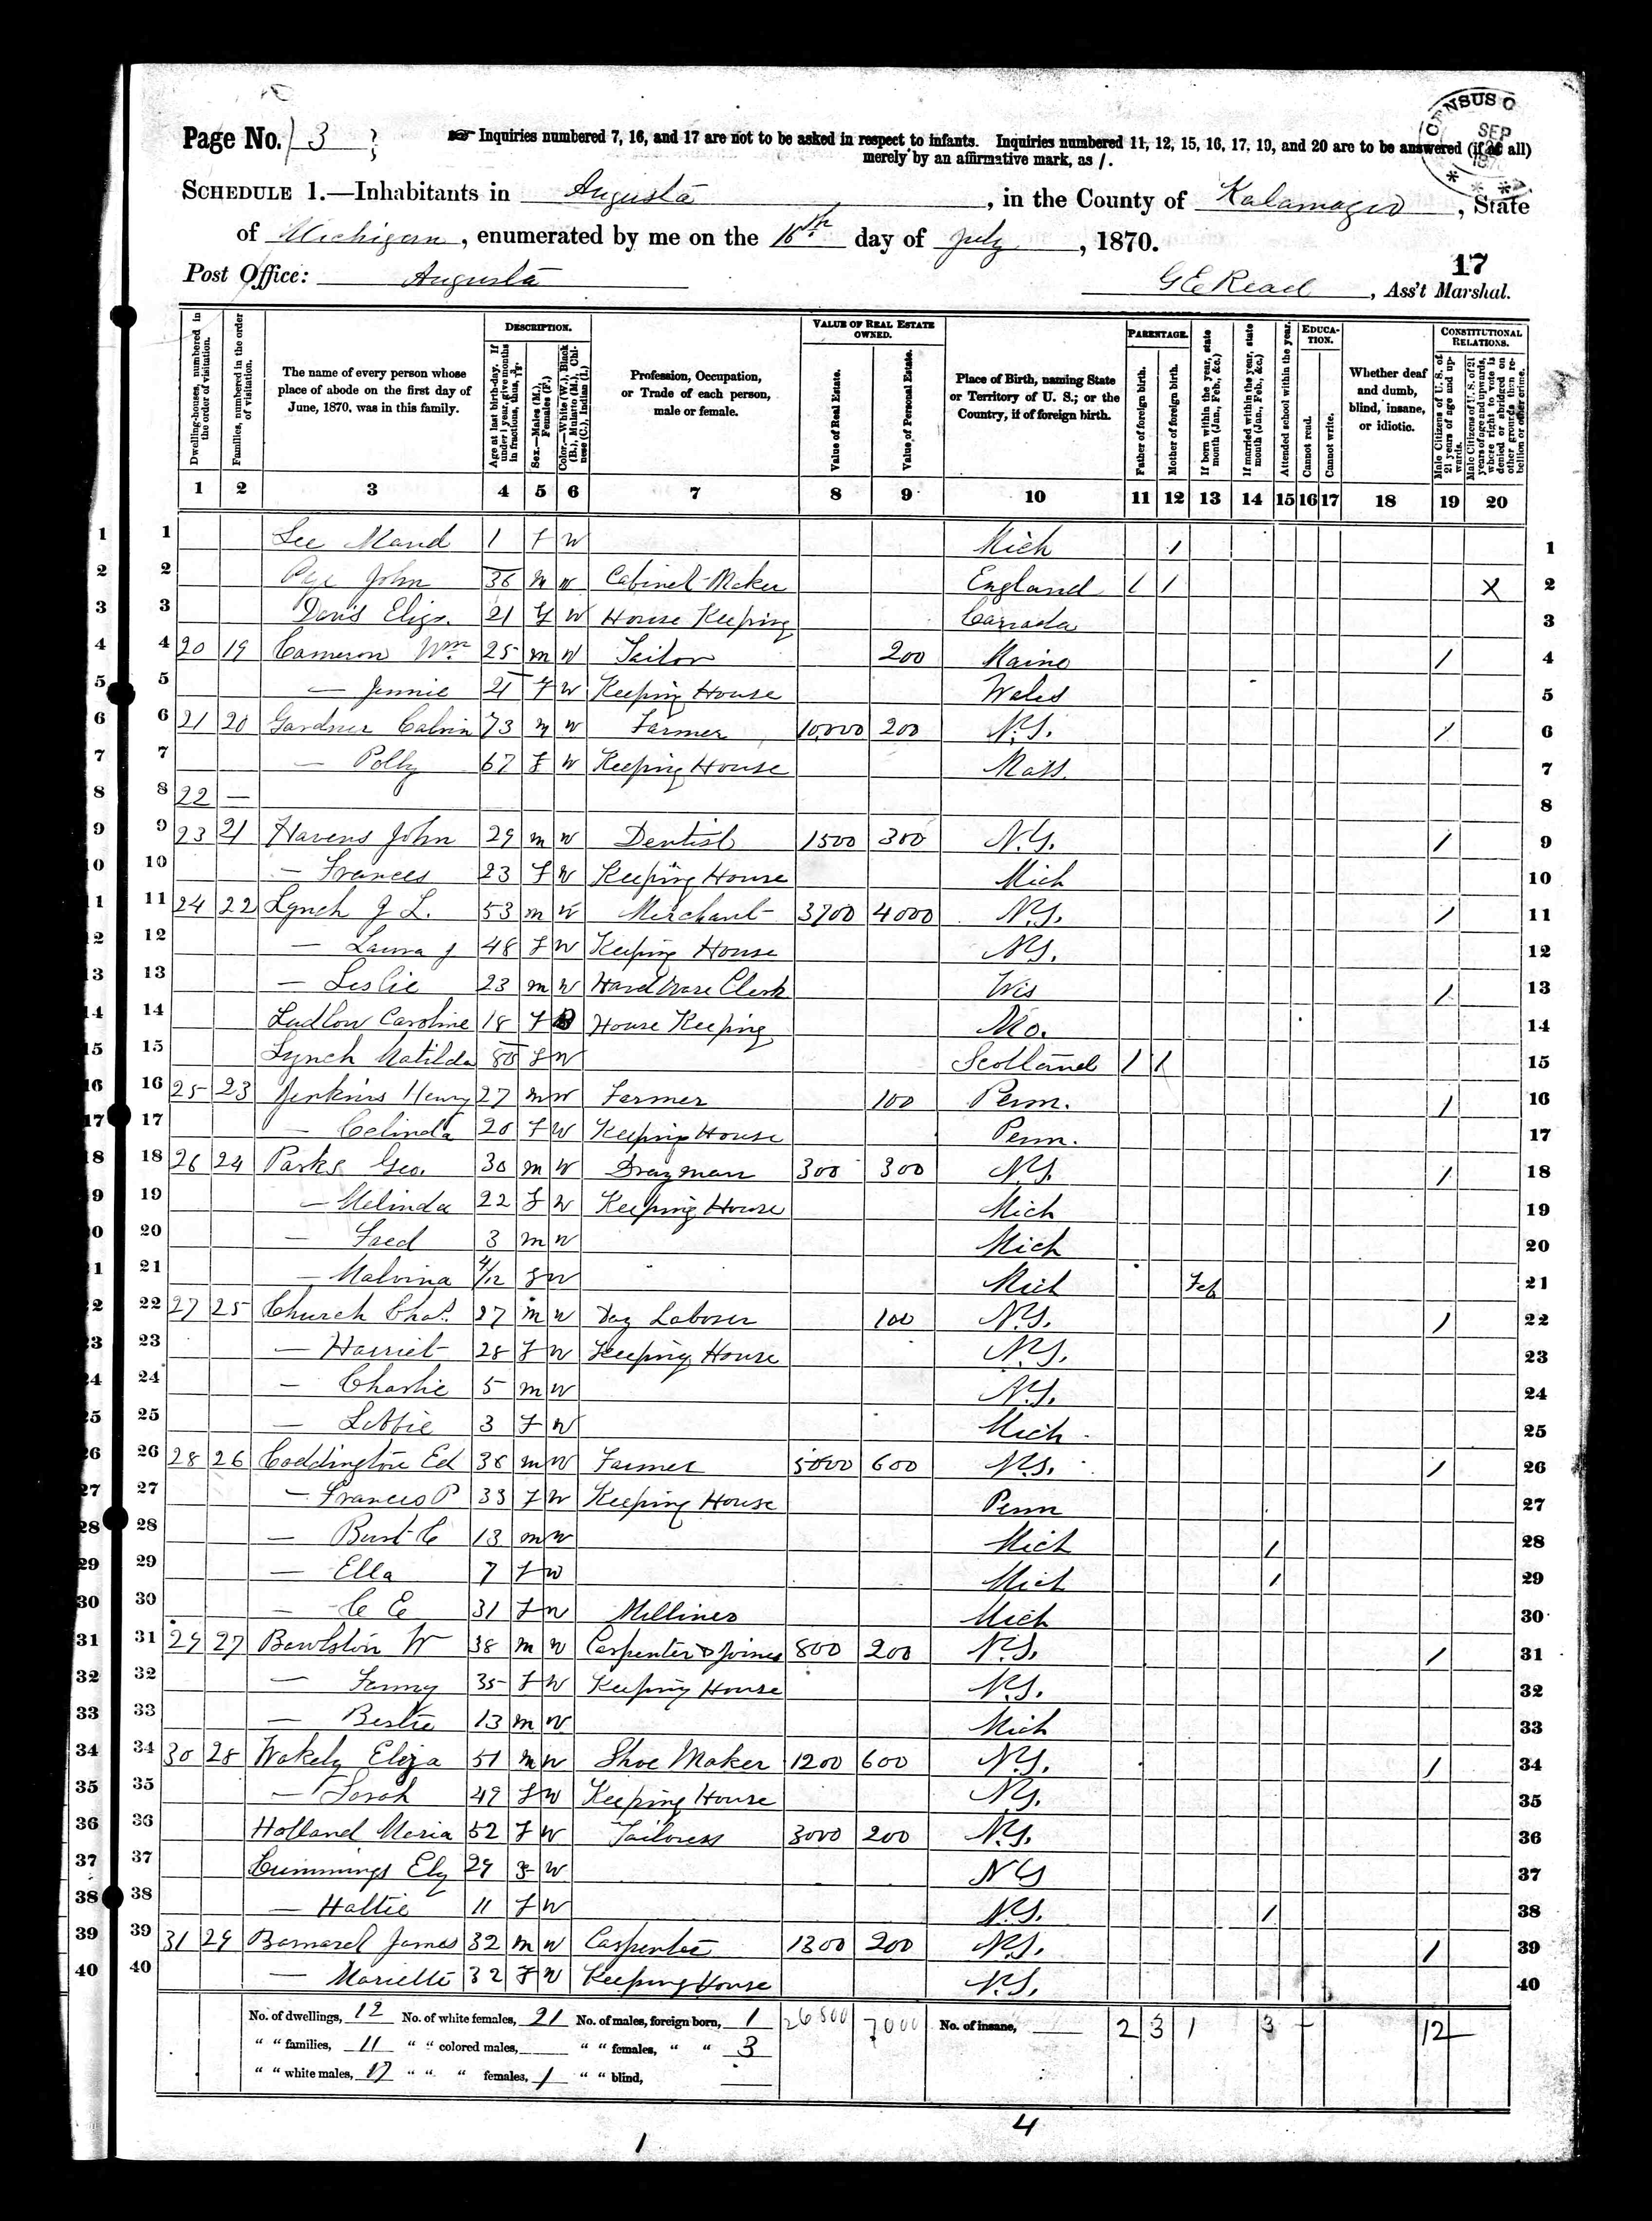 Page No. 3
Inquiries numbered 7, 16, and 17 are not to be asked in respect to infants. Inquiries numbered 11, 12, 15, 16, 17, 19, and 20 are to be answered (if at all)
merely by an affirmative mark, as /.
CENSUS O
SEP
SCHEDULE 1.—Inhabitants in Augusta, in the County of Kalamazoo, State
of Michigan, enumerated by me on the 16th day of July, 1870.
17
Post Office: Augusta G E Read, Ass't Marshal.
Dwelling-houses, numbered in the order of visitation.
Families, numbered in the order of visitation.
The name of every person whose place of abode on the first day of June, 1870, was in this family.
DESCRIPTION.
Age at last birth-day. If under 1 year, give months in fractions, thus, 3/12.
Sex.—Males (M.), Females (F.)
Color.—White (W.), Black (B.), Mulatto (M.), Chinese (C.), Indian (I.)
Profession, Occupation, or Trade of each person, male or female.
VALUE OF REAL ESTATE OWNED.
Value of Real Estate.
Value of Personal Estate.
Place of Birth, naming State or Territory of U. S.; or the Country, if of foreign birth.
PARENTAGE.
Father of foreign birth.
Mother of foreign birth.
If born within the year, state month (Jan., Feb., &c.)
If married within the year, state month (Jan., Feb., &c.)
Attended school within the year.
EDUCATION.
Cannot read.
Cannot write.
Whether deaf and dumb, blind, insane, or idiotic.
CONSTITUTIONAL RELATIONS.
Male Citizens of U. S. of 21 years of age and upwards.
Male Citizens of U. S. of 21 years of age and upwards, where right to vote is denied or abridged on other grounds than rebellion or other crime.
1 2 3 4 5 6 7 8 9 10 11 12 13 14 15 16 17 18 19 20
1 1 Lee Maud 1 F W Mich / 1
2 2 John 36 M W Cabinet Maker England / / X 2
3 3 Davis Eliza. 21 F W House Keeping Canada 3
4 4 20 19 Cameron Wm. 25 M W Tailor 200 Maine / 4
5 5 — Jennie 21 F W Keeping House Wales 5
6 6 21 20 Gardner Calvin 73 M W Farmer 10,000 200 N.Y. / 6
7 7 — Polly 67 F W Keeping House Mass. 7
8 8 22 — 8
9 9 23 21 Havens John 29 M W Dentist 1500 300 N.Y. / 9
10 10 — Frances 23 F W Keeping House Mich 10
11 11 24 22 Lynch J L. 53 M W Merchant 3700 4000 N.Y. / 11
12 12 — Laura J 48 F W Keeping House N.Y. 12
13 13 — Leslie 23 M W Hardware Clerk Wis / 13
14 14 Ludlow Caroline 18 F B House Keeping Mo. 14
15 15 Lynch Matilda 80 F W Scotland / / 15
16 16 25 23 Jenkins Henry 27 M W Farmer 100 Penn. / 16
17 17 — Celinda 20 F W Keeping House Penn. 17
18 18 26 24 Parks Geo. 30 M W Drayman 300 300 N.Y. / 18
19 19 — Melinda 22 F W Keeping House Mich 19
20 20 — Fred 3 M W Mich 20
21 21 — Malvina 4/12 F W Mich Feb 21
22 22 27 25 Church Chas. 27 M W Day Laborer 100 N.Y. / 22
23 23 — Harriet 28 F W Keeping House N.Y. 23
24 24 — Charlie 5 M W N.Y. 24
25 25 — Libbie 3 F W Mich 25
26 26 28 26 Coddington Ed 38 M W Farmer 5000 600 N.Y. / 26
27 27 — Frances P 33 F W Keeping House Penn 27
28 28 — Burt C 13 M W Mich / 28
29 29 — Ella 7 F W Mich / 29
30 30 — C E 31 F W Milliner Mich 30
31 31 29 27 Bowlston W 38 M W Carpenter & Joiner 800 200 N.Y. / 31
32 32 — Fanny 35 F W Keeping House N.Y. 32
33 33 — Bertie 13 M W Mich 33
34 34 30 28 Wakely Eliza 51 M W Shoe Maker 1200 600 N.Y. / 34
35 35 — Sarah 49 F W Keeping House N.Y. 35
36 36 Holland Maria 52 F W Tailoress 3000 200 N.Y. 36
37 37 Cummings Ely 29 F W N Y 37
38 38 — Hattie 11 F W N.Y. / 38
39 39 31 29 Barnard James 32 M W Carpenter 1300 200 N.Y. / 39
40 40 — Mariette 32 F W Keeping House N.Y. 40
No. of dwellings, 12 No. of white females, 21 No. of males, foreign born, 1 26800 7000 No. of insane, 2 3 1 3 12
" " families, 11 " " colored males, " " females, " " 3
" " white males, 17 " " " females, 1 " " blind,
4
1